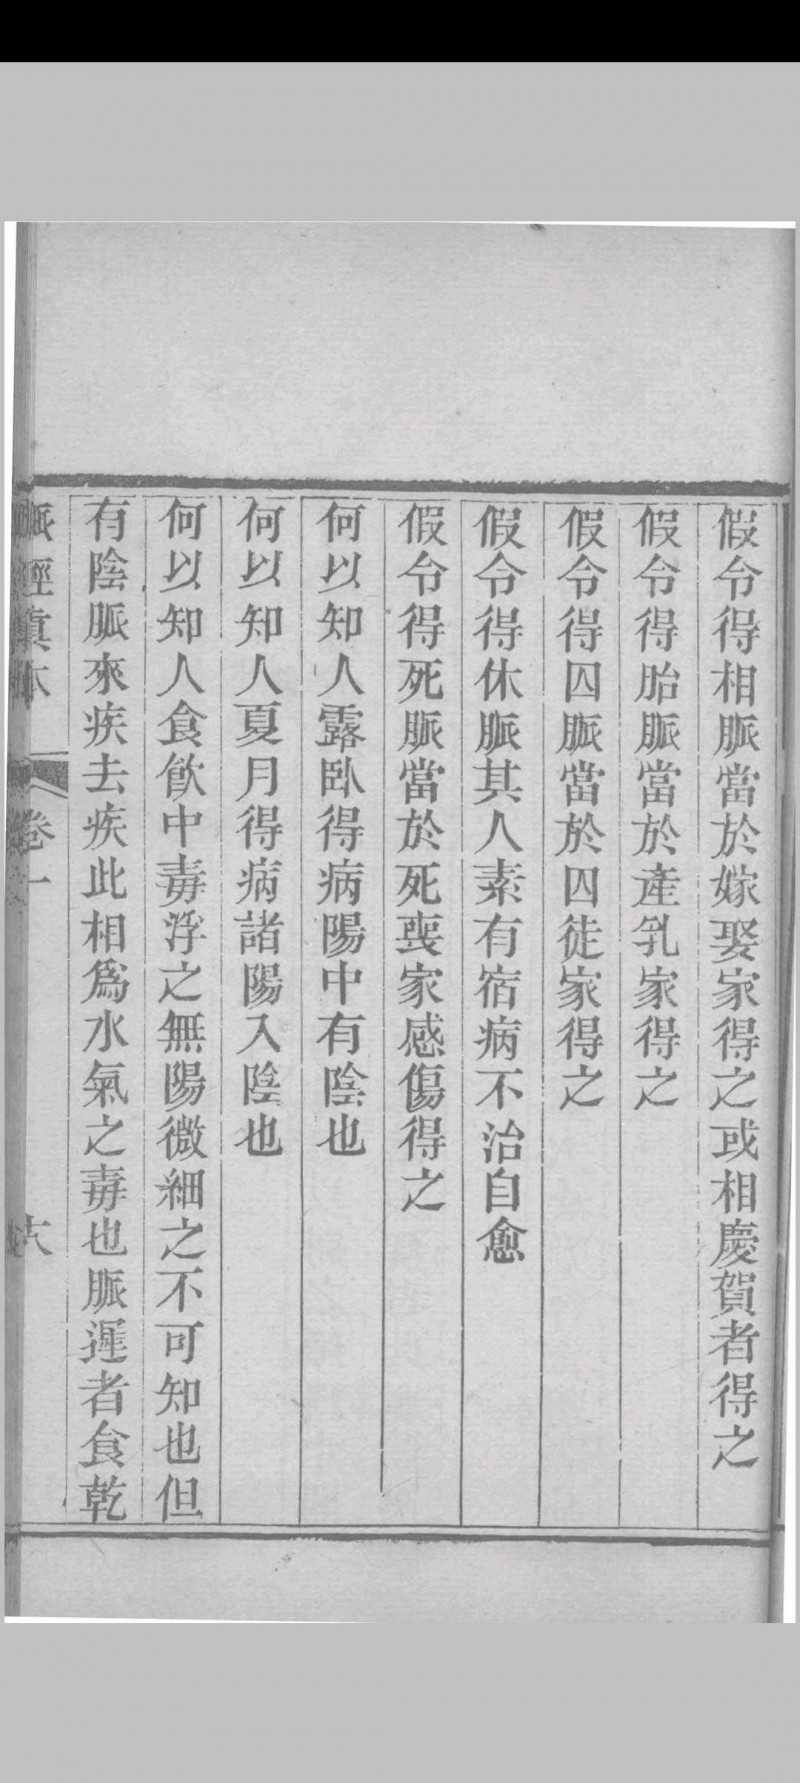 假令得相脈當於嫁娶家得之或相慶賀者得之
假令得胎脈當於產乳家得之
假令得囚脈當於囚徒家得之
假令得休脈其人素有宿病不治自愈
假令得死脈當於死喪家感傷得之
何以知人露臥得病陽中有陰也
何以知人夏月得病諸陽入陰也
何以知人食飲中毒浮之無陽微細之不可知也但
有陰脈來疾去疾此相爲水氣之毒也脈遲者食乾
脈經眞本
卷一